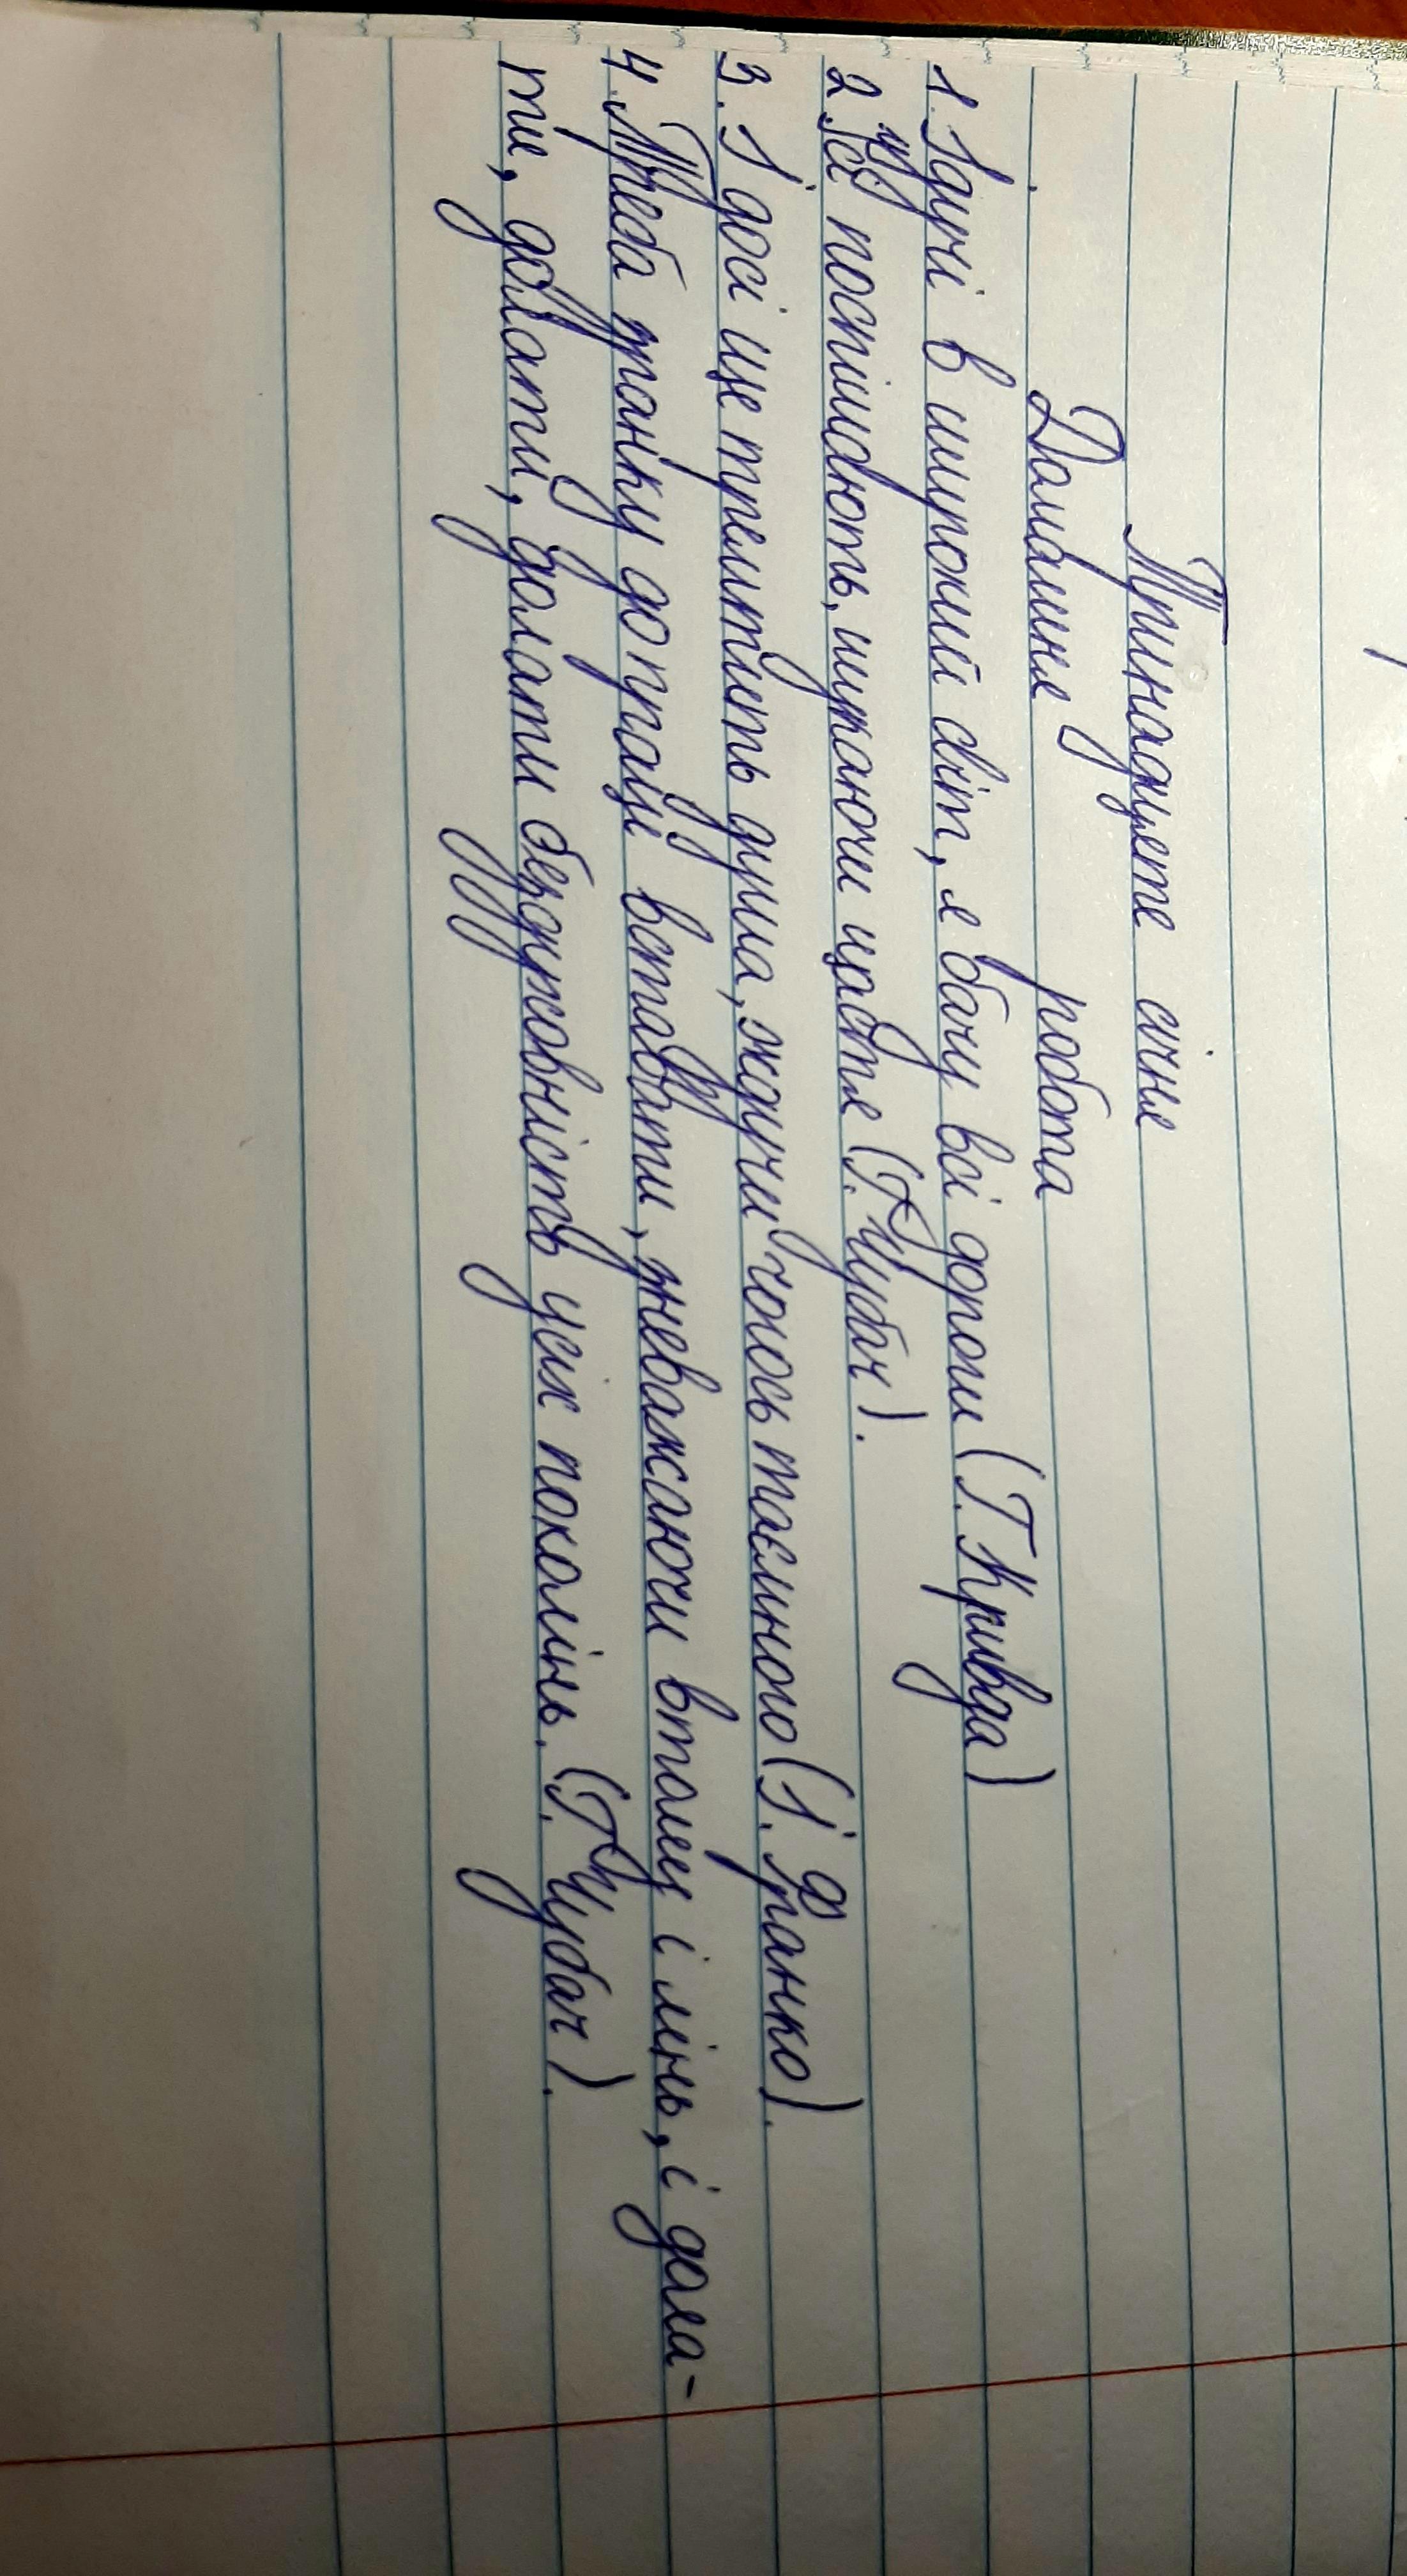 Тринадцяте січня
Домашня робота
1. Ідучі в широкий світ, я бачу всі дороги (Г. Кривда)
2. Усі поспішають, шукаючи щастя (Г. Чубач).
3. І досі ще тремтить душа, ждучи чогось таємного (І. Франко).
4. Треба зранку до праці вставати, незважаючи втому і лінь, і дола-
ти, долати, долати бездуховність усіх поколінь. (Г. Чубач).